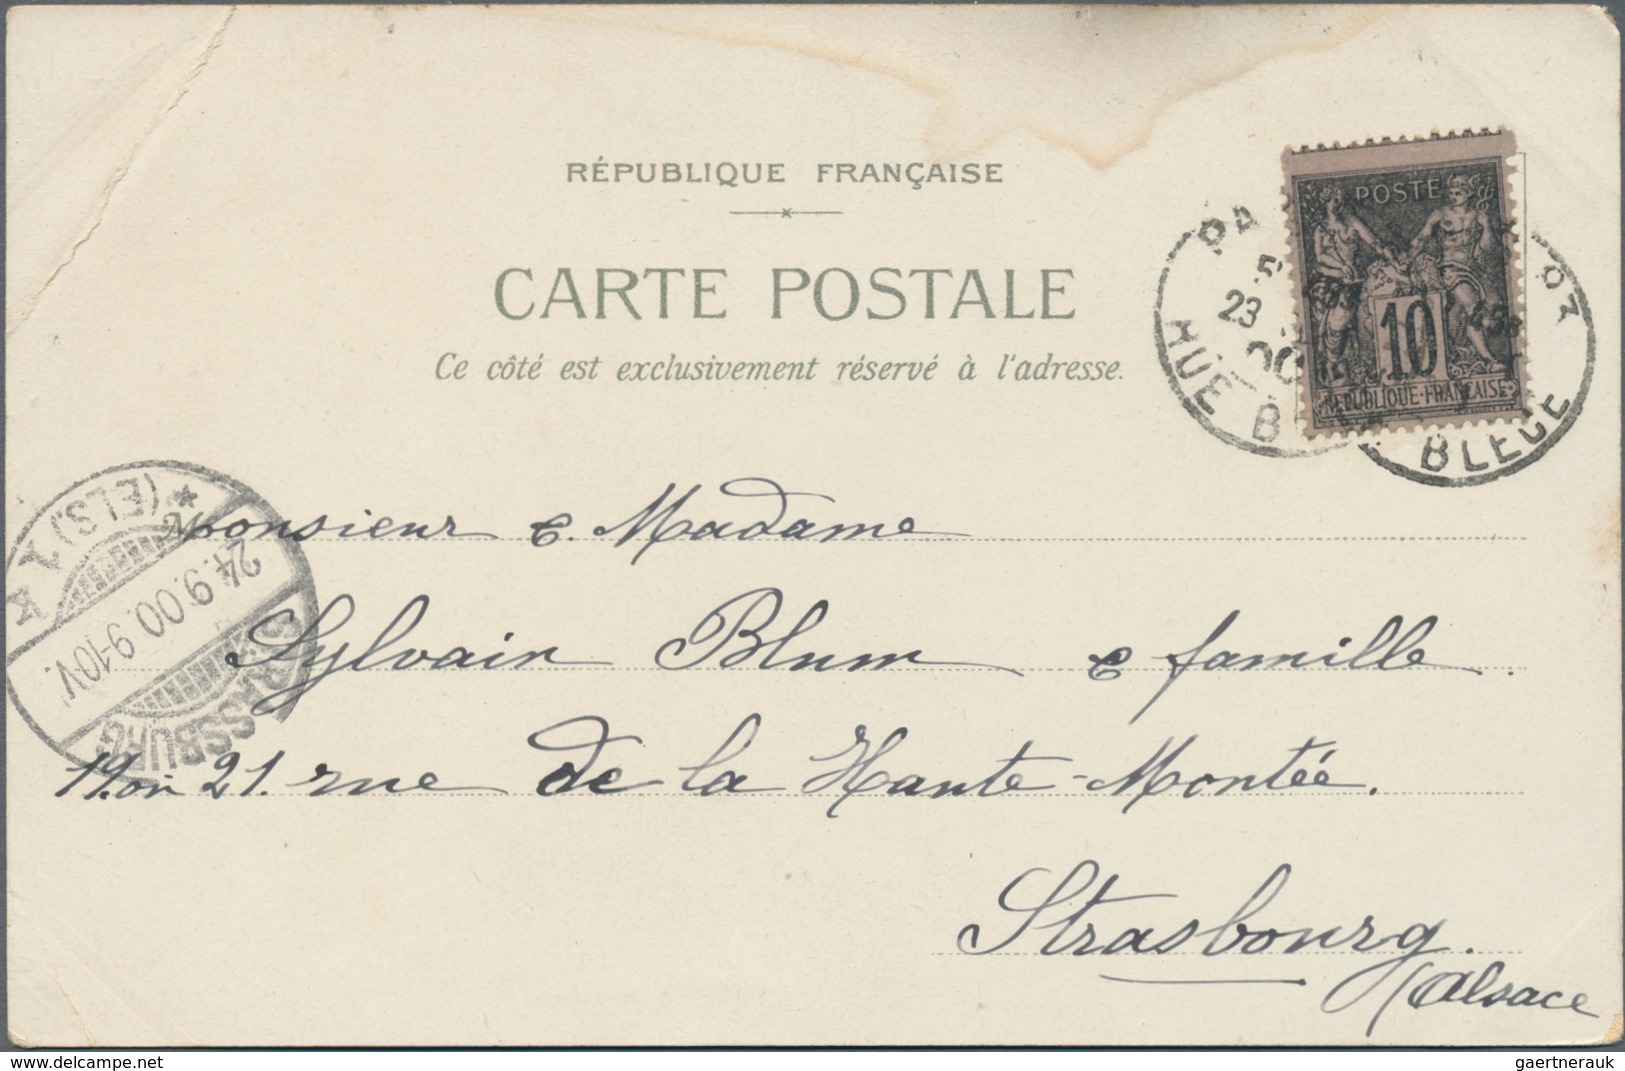 RÉPUBLIQUE FRANÇAISE
CARTE POSTALE
Ce côté est exclusivement réservé à l'adresse.
POSTE
10
REPUBLIQUE·FRANÇAISE
23
BLEUE
(ELS.)
24.9.00.9-10V.
STRASSBURG
Monsieur & Madame
Sylvain Blum & famille.
19. ou 21. rue de la Haute-Montée.
Strasbourg.
(Alsace
gaertnerauk
www.delcampe.net